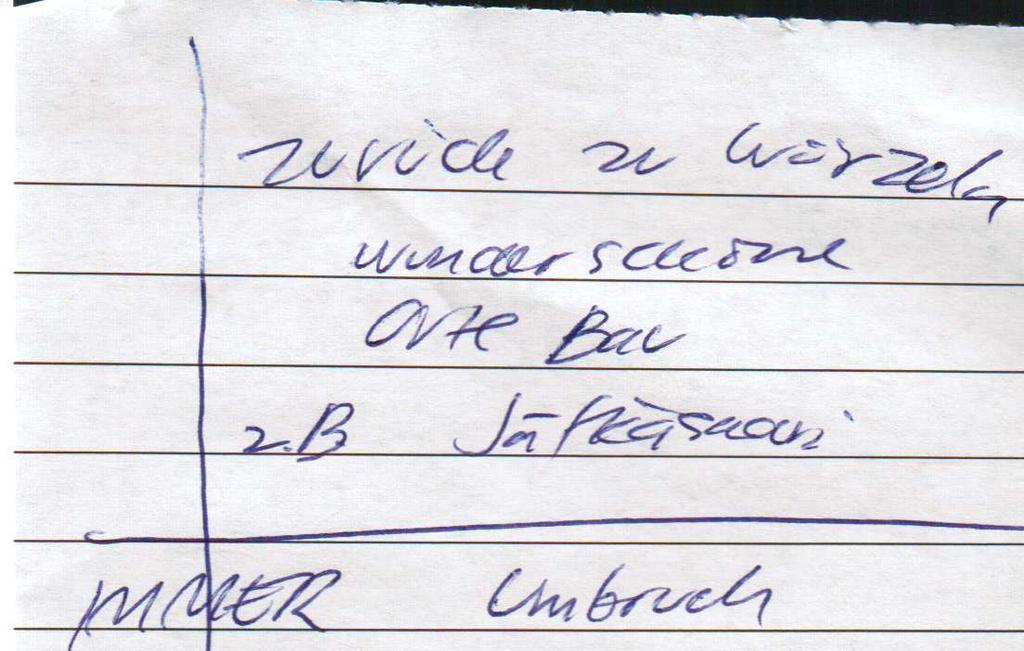 zurück zu Wurzeln
wunderschöne
Orte Bau
z.B Jätkäsaari
IMMER Umbruch